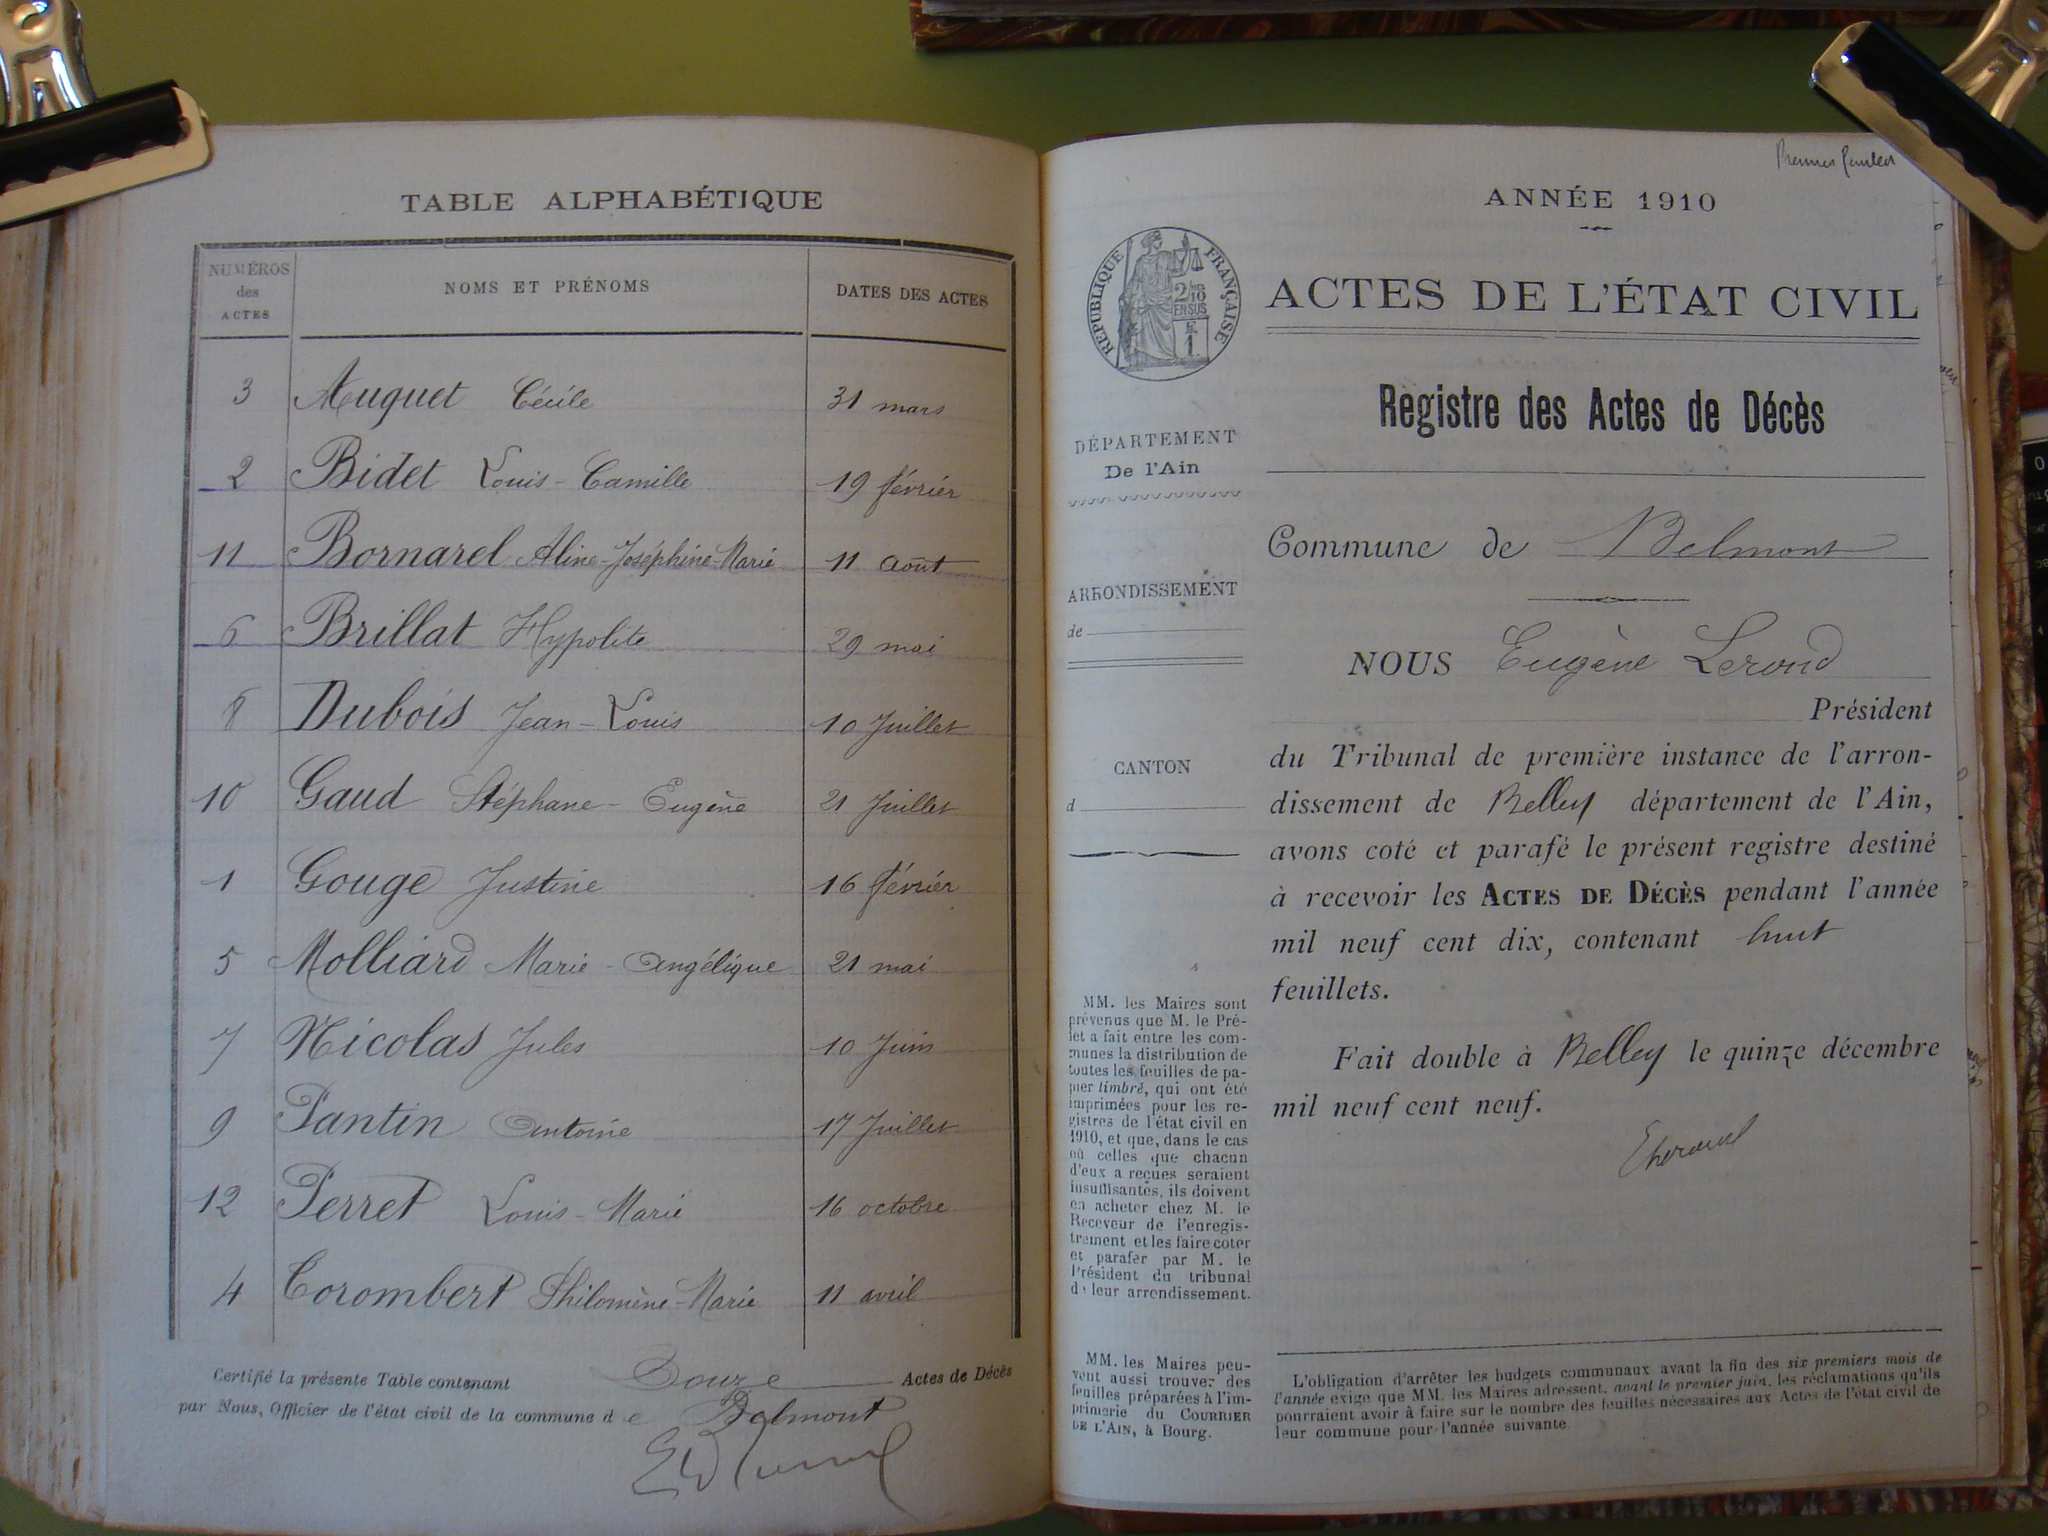 TABLE ALPHABÉTIQUE
NUMÉROS des ACTES NOMS ET PRÉNOMS DATES DES ACTES
3 Auguet Cécile 31 mars
2 Bidet Louis-Camille 19 février
11 Bornarel Aline-Joséphine-Marie 11 août
6 Brillat Hypolite 29 mai
8 Dubois Jean-Louis 10 Juillet
10 Gaud Stéphane-Eugène 21 Juillet
1 Gouge Justine 16 février
5 Molliard Marie-Angélique 21 mai
7 Nicolas Jules 10 Juin
9 Pantin Antoine 17 Juillet
12 Perret Louis-Marie 16 octobre
4 Corombert Philomène-Marie 11 avril
Certifié la présente Table contenant Douze Actes de Décès
par Nous, Officier de l'état civil de la commune de Belmont
Premier feuillet
ANNÉE 1910
RÉPUBLIQUE FRANÇAISE
2/10
EN SUS
1
ACTES DE L'ÉTAT CIVIL
Registre des Actes de Décès
DÉPARTEMENT
De l'Ain
Commune de Belmont
ARRONDISSEMENT
de
NOUS Eugène Lerond
Président
du Tribunal de première instance de l'arron-
CANTON
d
dissement de Belley département de l'Ain,
avons coté et parafé le présent registre destiné
à recevoir les ACTES DE DÉCÈS pendant l'année
mil neuf cent dix, contenant huit
feuillets.
Fait double à Belley le quinze décembre
mil neuf cent neuf.
MM. les Maires sont
prévenus que M. le Pré-
fet a fait entre les com-
munes la distribution de
toutes les feuilles de pa-
pier timbré, qui ont été
imprimées pour les re-
gistres de l'état civil en
1910, et que, dans le cas
où celles que chacun
d'eux a reçues seraient
insuffisantes, ils doivent
en acheter chez M. le
Receveur de l'enregis-
trement et les faire coter
et parafer par M. le
Président du tribunal
de leur arrondissement.
MM. les Maires peu-
vent aussi trouver des
feuilles préparées à l'im-
primerie du COURRIER
DE L'AIN, à Bourg.
L'obligation d'arrêter les budgets communaux avant la fin des six premiers mois de
l'année exige que MM. les Maires adressent, avant le premier juin, les réclamations qu'ils
pourraient avoir à faire sur le nombre des feuilles nécessaires aux Actes de l'état civil de
leur commune pour l'année suivante